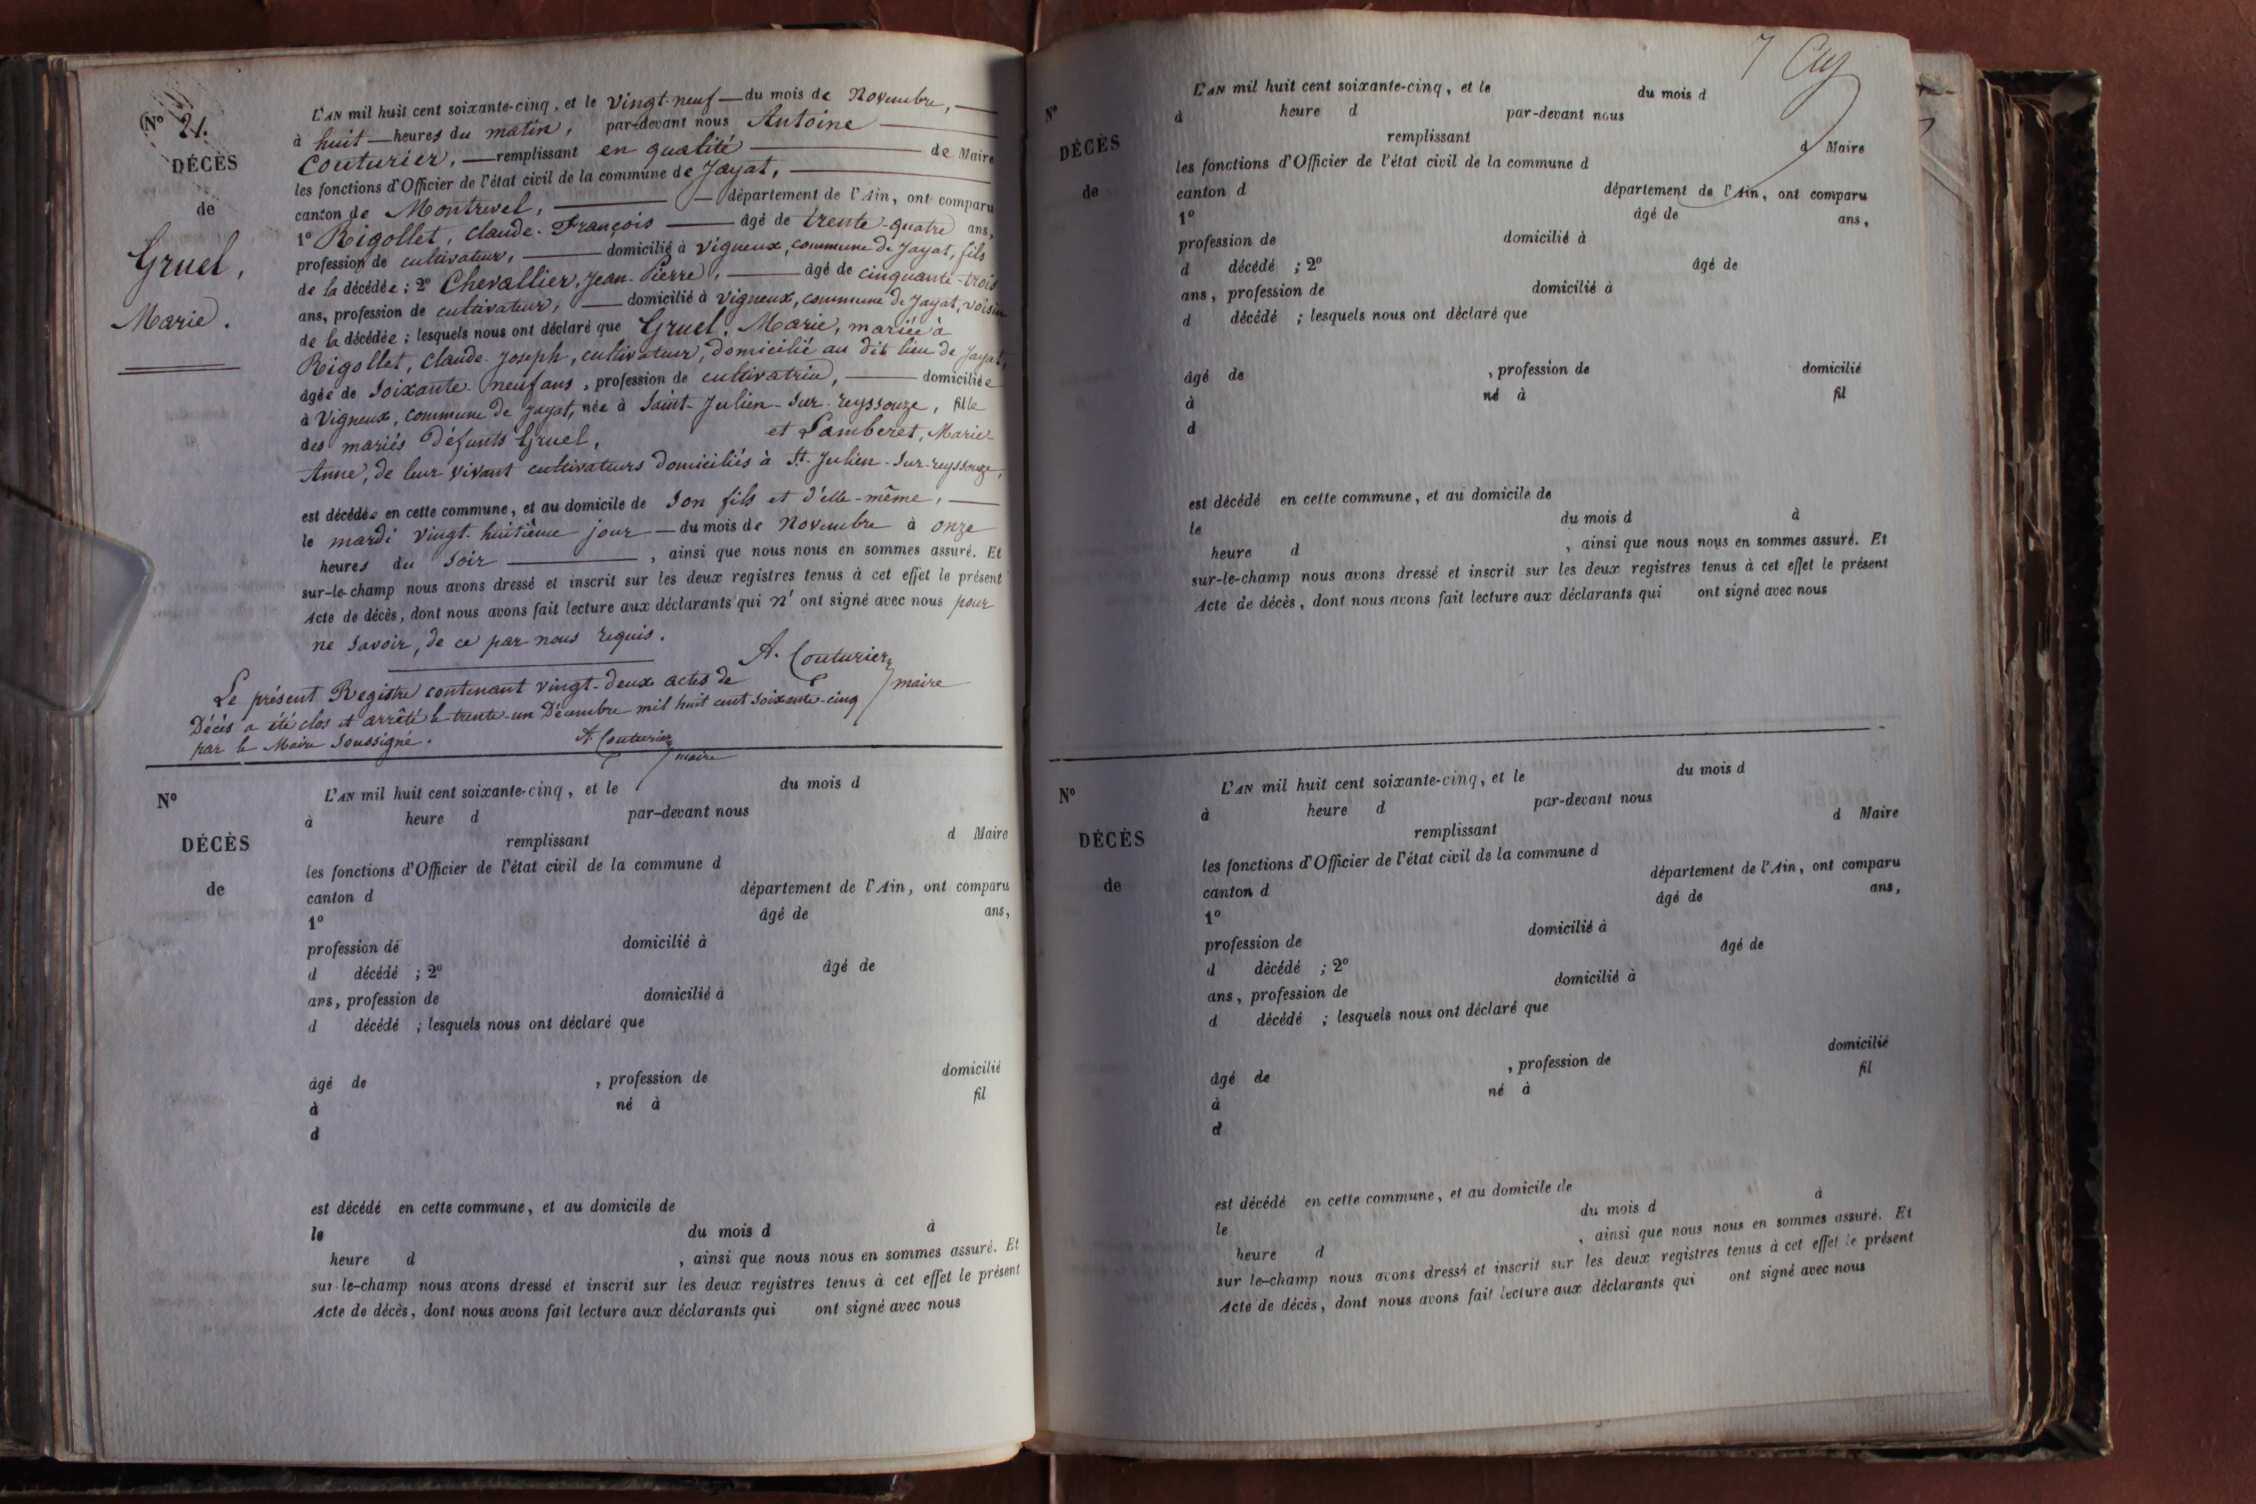 N° 21.
DÉCÈS
de
Gruel,
Marie.
L'AN mil huit cent soixante-cinq, et le vingt-neuf du mois de Novembre,
à huit heures du matin, par-devant nous Antoine
Couturier, remplissant en qualité de Maire
les fonctions d'Officier de l'état civil de la commune de Jayat,
canton de Montrevel, département de l'Ain, ont comparu
1° Rigollet, Claude-François âgé de trente-quatre ans,
profession de cultivateur, domicilié à Vigneux, commune de Jayat, fils
de la décédée ; 2° Chevallier, Jean-Pierre, âgé de cinquante-trois
ans, profession de cultivateur, domicilié à Vigneux, commune de Jayat, voisin
de la décédée ; lesquels nous ont déclaré que Gruel, Marie, mariée à
Rigollet, Claude-Joseph, cultivateur, domicilié au dit lieu de Jayat,
âgée de soixante-neuf ans, profession de cultivatrice, domiciliée
à Vigneux, commune de Jayat, née à Saint-Julien-sur-reyssouze, fille
des mariés défunts Gruel, et Lamberet, Marie
Anne, de leur vivant cultivateurs domiciliés à St. Julien-sur-reyssouze,
est décédée en cette commune, et au domicile de son fils et d'elle-même,
le mardi vingt-huitième jour du mois de Novembre à onze
heures du soir , ainsi que nous nous en sommes assuré. Et
sur-le-champ nous avons dressé et inscrit sur les deux registres tenus à cet effet le présent
Acte de décès, dont nous avons fait lecture aux déclarants qui n'ont signé avec nous pour
ne savoir, de ce par nous requis.
A. Couturier
maire
Le présent Registre contenant vingt-deux actes de
Décès a été clos et arrêté le trente-un Décembre mil huit cent soixante-cinq
par le Maire soussigné.
A. Couturier
maire
N°
DÉCÈS
de
L'AN mil huit cent soixante-cinq, et le du mois d
à heure d par-devant nous
remplissant d Maire
les fonctions d'Officier de l'état civil de la commune d
canton d département de l'Ain, ont comparu
1° âgé de ans,
profession de domicilié à
d décédé ; 2° âgé de
ans, profession de domicilié à
d décédé ; lesquels nous ont déclaré que
âgé de , profession de domicilié
à né à fil
d
est décédé en cette commune, et au domicile de
le du mois d à
heure d , ainsi que nous nous en sommes assuré. Et
sur-le-champ nous avons dressé et inscrit sur les deux registres tenus à cet effet le présent
Acte de décès, dont nous avons fait lecture aux déclarants qui ont signé avec nous
7
N°
DÉCÈS
de
L'AN mil huit cent soixante-cinq, et le du mois d
à heure d par-devant nous
remplissant d Maire
les fonctions d'Officier de l'état civil de la commune d
canton d département de l'Ain, ont comparu
1° âgé de ans,
profession de domicilié à
d décédé ; 2° âgé de
ans, profession de domicilié à
d décédé ; lesquels nous ont déclaré que
âgé de , profession de domicilié
à né à fil
d
est décédé en cette commune, et au domicile de
le du mois d à
heure d , ainsi que nous nous en sommes assuré. Et
sur-le-champ nous avons dressé et inscrit sur les deux registres tenus à cet effet le présent
Acte de décès, dont nous avons fait lecture aux déclarants qui ont signé avec nous
N°
DÉCÈS
de
L'AN mil huit cent soixante-cinq, et le du mois d
à heure d par-devant nous
remplissant d Maire
les fonctions d'Officier de l'état civil de la commune d
canton d département de l'Ain, ont comparu
1° âgé de ans,
profession de domicilié à
d décédé ; 2° âgé de
ans, profession de domicilié à
d décédé ; lesquels nous ont déclaré que
âgé de , profession de domicilié
à né à fil
d
est décédé en cette commune, et au domicile de
le du mois d à
heure d , ainsi que nous nous en sommes assuré. Et
sur le-champ nous avons dressé et inscrit sur les deux registres tenus à cet effet le présent
Acte de décès, dont nous avons fait lecture aux déclarants qui ont signé avec nous